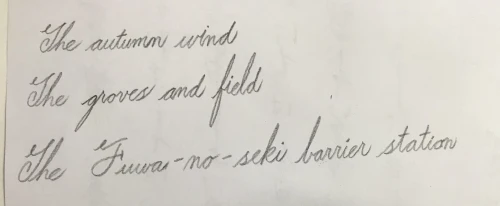 The autumn wind
The groves and field
The Fuwa-no-seki barrier station